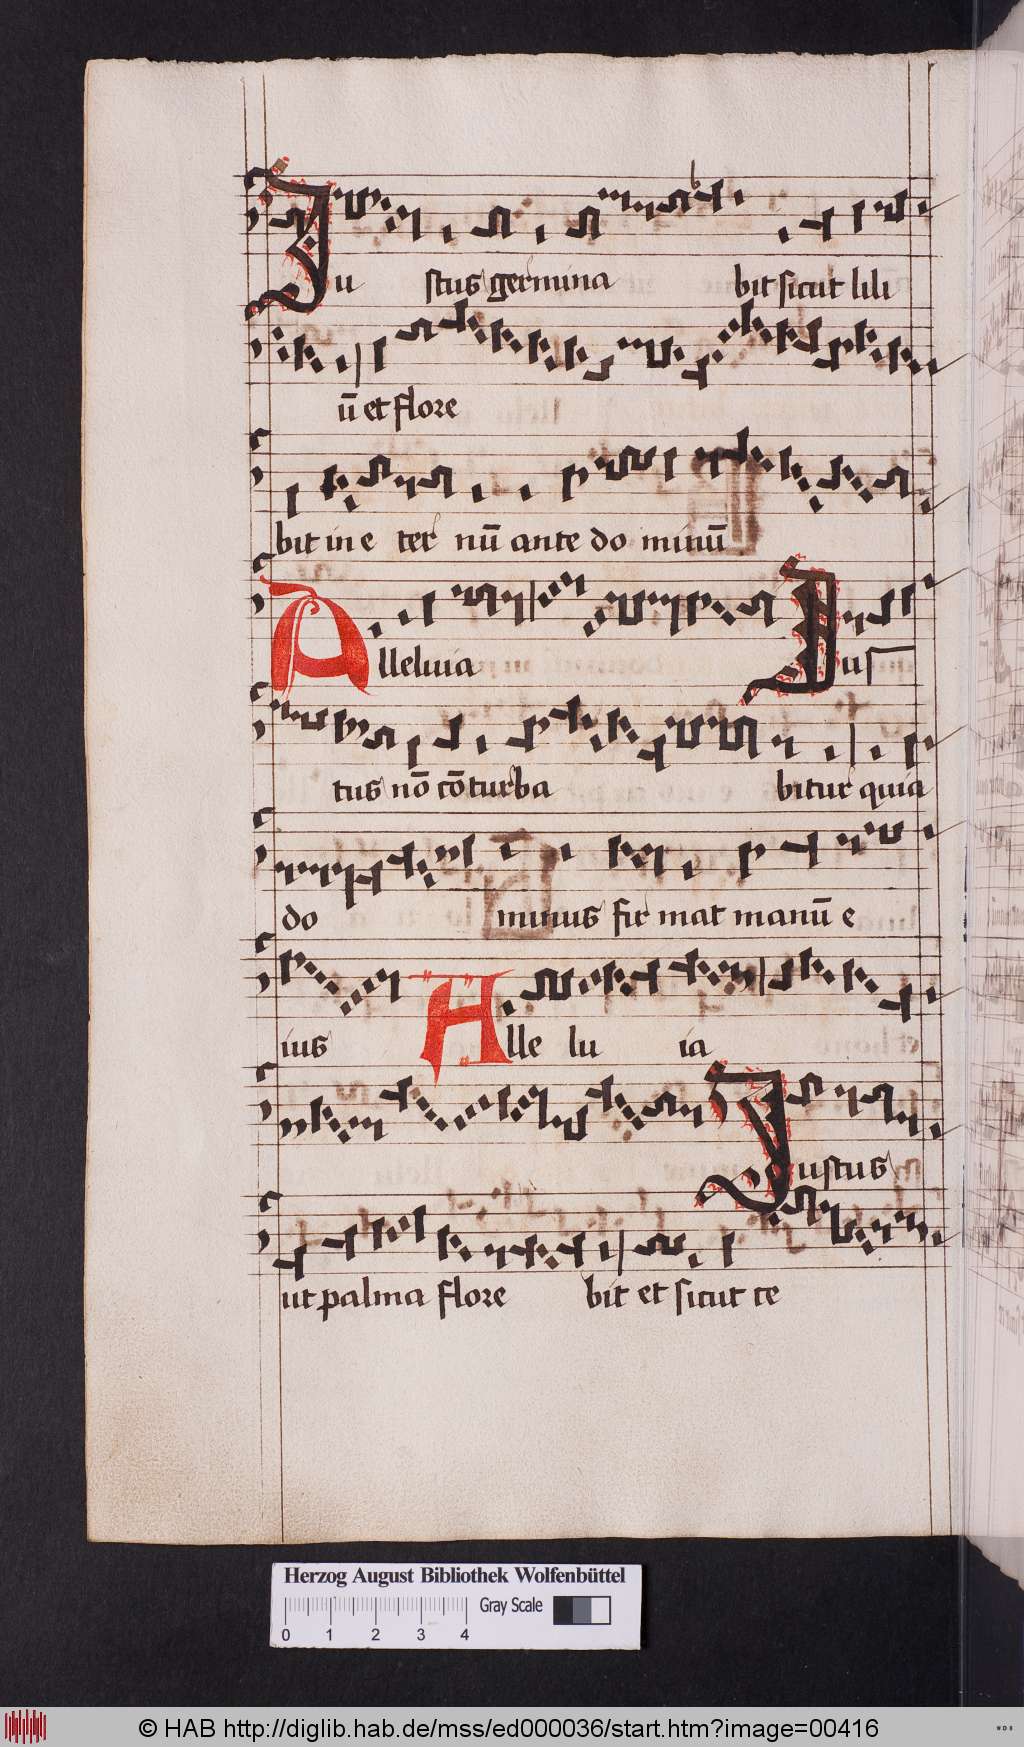 Ju stus germina bit sicut lili
ū et flore
bit in e ter nū ante do minū
Alleluia Jus
tus nō cōturba bitur quia
do minus fir mat manū e
ius Alle lu ia
Justus
ut palma flore bit et sicut ce
Herzog August Bibliothek Wolfenbüttel
Gray Scale
0 1 2 3 4
© HAB http://diglib.hab.de/mss/ed000036/start.htm?image=00416